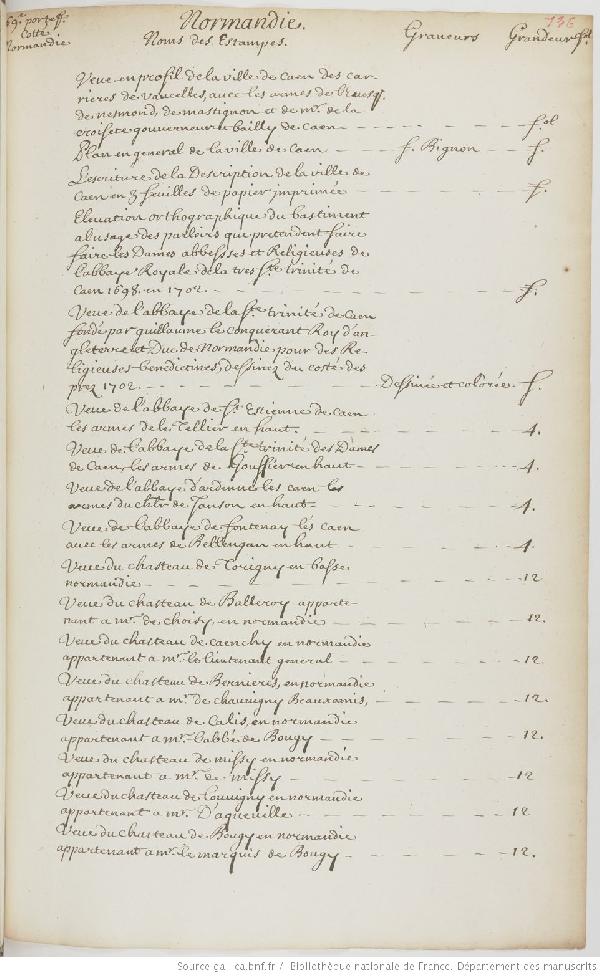 69e portef. Normandie. 136
Cotte Noms des Estampes. Graveurs Grandeur
Normandie
Veue en profil de la ville de Caen des car-
rieres de Vaucelles, avec les armes de
de nesmond, de mastignon et de mr. de la
croisete gouverneur et bailly de Caen fol
Plan en general de la ville de Caen f. Bignon f.
L'escriture de la Description de la ville de
Caen en 3 feuilles de papier imprimée f.
Elevation orthographique du bastiment
a l'usage des parloirs que pretendent faire
faire les Dames abbesses et Religieuses de
l'abbaye Royale de la tres ste. trinité de
Caen 1698. en 1702. f.
Veue de l'abbaye de la ste trinité de Caen
fondé par guillaume le conquerant Roy d'an-
gleterre et Duc de Normandie pour des Re-
ligieuses benedictines, dessinez du costé des
prez 1702 Dessinée et colorée f.
Veue de l'abbaye de St. Estienne de Caen
les armes de le Tellier en haut. 4.
Veue de l'abbaye de la ste trinité des Dames
de Caen, les armes de Gouffier en haut 4.
Veue de l'abbaye d'ardenne les caen les
armes du de Janson en haut 4.
Veue de l'abbaye de fontenay lés caen
avec les armes de Bellengan en haut 4
Veue du chasteau de Torigny en basse
normandie 12
Veue du chasteau de Balleroy apparte-
nant a mr. de choisy, en normandie 12.
Veue du chasteau de Caenchy en normandie
appartenant a mr. le lieutenant general 12
Veue du chasteau de Bernieres, en normandie
appartenant a mr. de chauvigny Beauxamis, 12.
Veue du chasteau de Calis, en normandie
appartenant a mr. l'abbé de Bougy 12.
Veue du chasteau de missy en normandie
appartenant a mr. de missy 12
Veue du chasteau de Louvigny en normandie
appartenant a mr. D'agueville 12
Veue du chasteau de Bougy en normandie
appartenant a mr. le marquis de Bougy 12.
Source gallica.bnf.fr / Bibliothèque nationale de France. Département des manuscrits